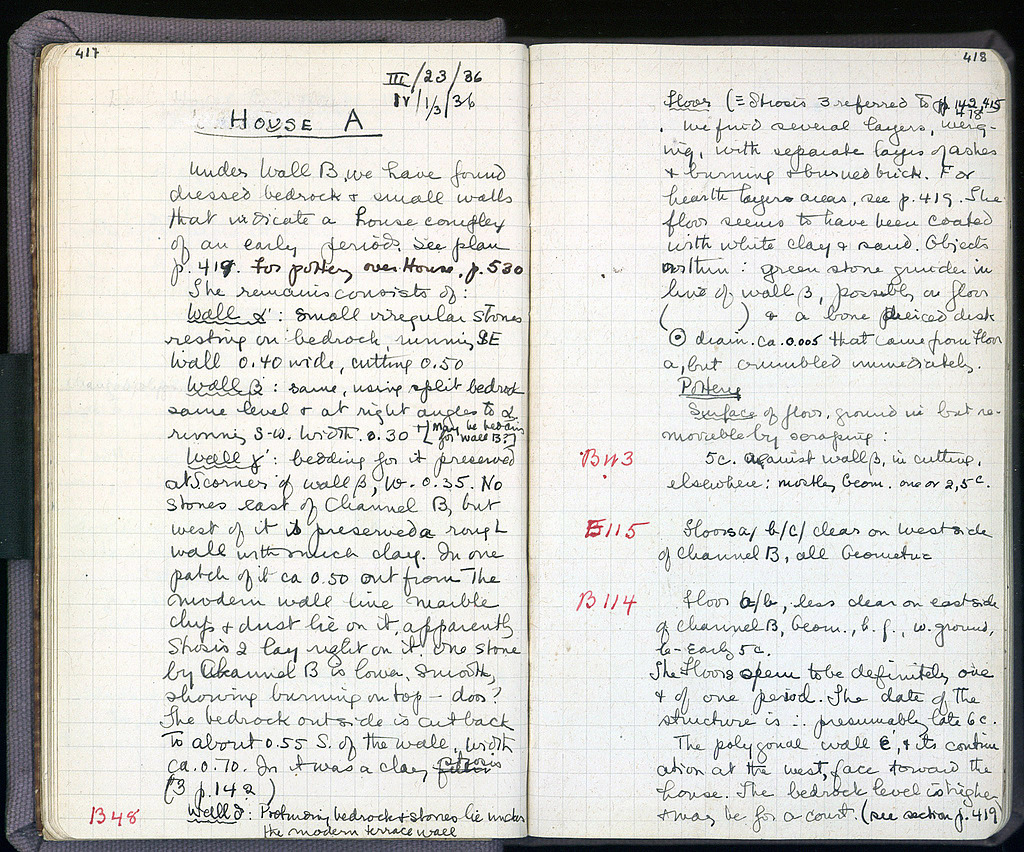 417
III/23/36
IV/1/3/36
HOUSE A
Under Wall B, we have found
dressed bedrock & small walls
that indicate a house complex
of an early period. See plan
p. 419. For pottery over House, p. 530
The remains consists of:
Wall α': small irregular stones
resting on bedrock, running SE
Wall 0.40 wide, cutting 0.50
Wall β': same, using split bedrock
same level & at right angles to α.
running S-W. Width. 0.30 [May be bedding
for wall B?]
Wall γ': bedding for it preserved
at S corner of wall β, W. 0.35. No
stones east of Channel B, but
west of it is preserved a rough
wall with much clay. In one
patch of it ca 0.50 out from the
modern wall line marble
chips & dust lie on it, apparently
Stosis 2 lay right on it. One stone
by Channel B is lower, smooth,
showing burning on top – door?
The bedrock outside is cut back
to about 0.55 S. of the wall, width
ca. 0.70. In it was a clay stosis
(3 p. 142 )
B48
Wall δ: Protruding bedrock & stones lie under
the modern terrace wall
418
Floors (= Stosis 3 referred to pp. 142, 415
418
. We find several layers, merg-
ing, with separate layers of ashes
& burning & burned brick. For
hearth layers areas, see p. 419. The
floor seems to have been coated
with white clay & sand. Objects
within: green stone grinder in
line of wall β, possibly on floor
( ) & a bone pierced disk
⊙ diam. ca. 0.005 that came from floor
a, but crumbled immediately.
Pottery
Surface of floor, ground in but re-
movable by scraping:
B 113
5c. against wall β, in cutting,
elsewhere: mostly Geom. one or 2, 5c.
E 115
Floors a/ b/c/ clear on west side
of Channel B, all Geometric
B 114
Floor a/b, less clear on east side
of Channel B, Geom., b.f., w. ground,
6-Early 5c.
The Floors seem to be definitely one
& of one period. The date of the
structure is ∴ presumably late 6c.
The polygonal wall ε', & its continu
ation at the west, face toward the
house. The bedrock level is higher
& may be for a court. (see section p. 419)